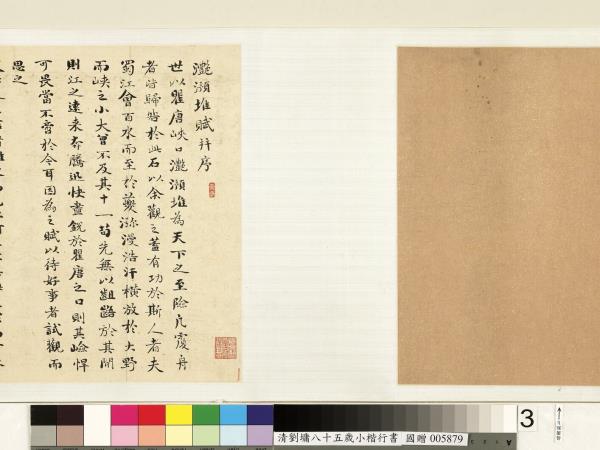 灩澦堆賦并序
世以瞿唐峽口灩澦堆為天下之至險凡覆舟
者皆歸咎於此石以余觀之蓋有功於斯人者夫
蜀江會百水而至於夔瀰漫浩汗橫放於大野
而峽之小大曾不及其十一苟先無以齟齬於其間
則江之遠來奔騰迅快盡銳於瞿唐之口則其嶮悍
可畏當不啻於今耳因為之賦以待好事者試觀而
思之
清劉墉八十五歲小楷行書 國贈 005879
3